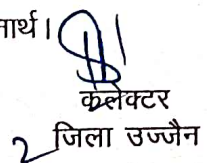 नार्थ।
कलेक्टर
जिला उज्जैन